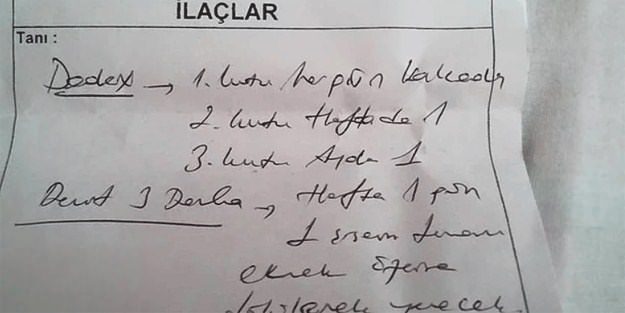 İLAÇLAR
Tanı :
Dodex → 1. kutu her gün kalçadan
2. kutu Haftada 1
3. kutu Ayda 1
Devit 3 Damla → Hafta 1 gün
1
ekmek üzerine
yenecek